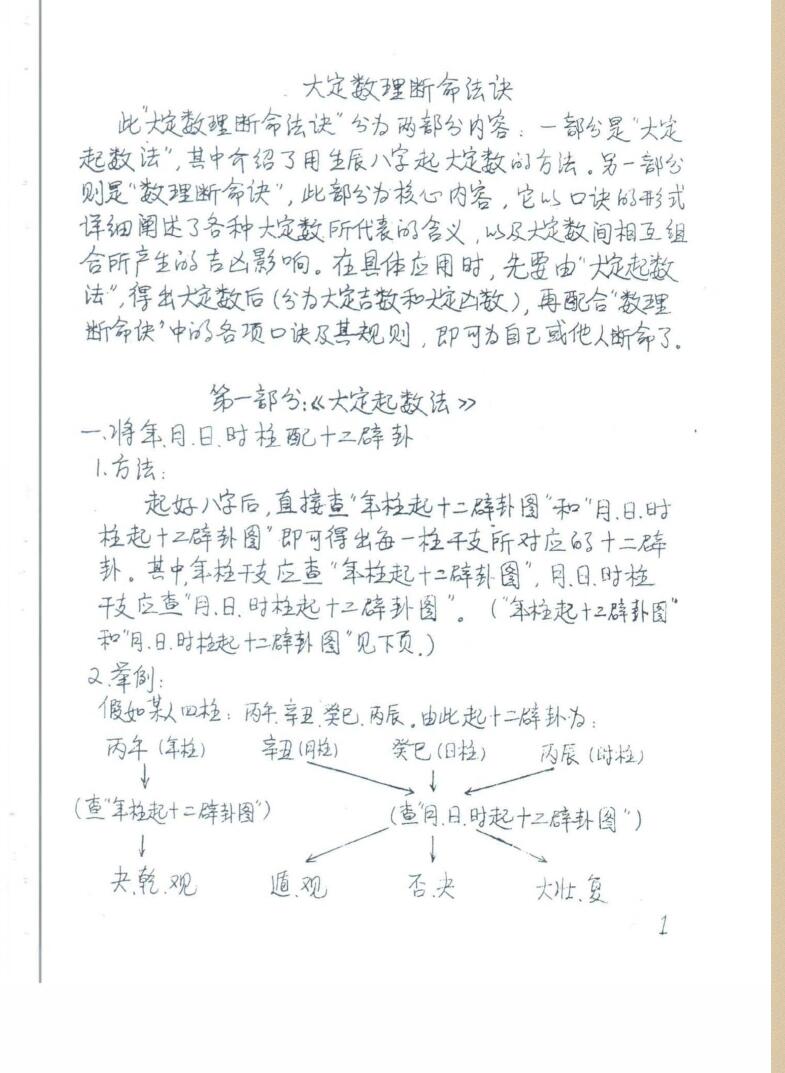 大定数理断命法诀
此"大定数理断命法诀"分为两部分内容：一部分是"大定
起数法",其中介绍了用生辰八字起大定数的方法。另一部分
则是"数理断命诀"，此部分为核心内容，它以口诀的形式
详细阐述了各种大定数所代表的含义，以及大定数间相互组
合所产生的吉凶影响。在具体应用时，先要由"大定起数
法",得出大定数后(分为大定吉数和大定凶数)，再配合"数理
断命诀"中的各项口诀及其规则，即可为自己或他人断命了。
第一部分:《大定起数法》
一.将年.月.日.时柱配十二辟卦
1.方法:
起好八字后,直接查"年柱起十二辟卦图"和"月.日.时
柱起十二辟卦图"即可得出每一柱干支所对应的十二辟
卦。其中,年柱干支应查"年柱起十二辟卦图"，月.日.时柱
干支应查"月.日.时柱起十二辟卦图"。("年柱起十二辟卦图"
和"月.日.时柱起十二辟卦图"见下页.)
2.举例:
假如某人四柱：丙午.辛丑.癸巳.丙辰。由此起十二辟卦为:
丙午(年柱) 辛丑(月柱) 癸巳(日柱) 丙辰(时柱)
(查"年柱起十二辟卦图") (查"月.日.时起十二辟卦图")
夬.乾.观 遁.观 否.夬 大壮.复
1